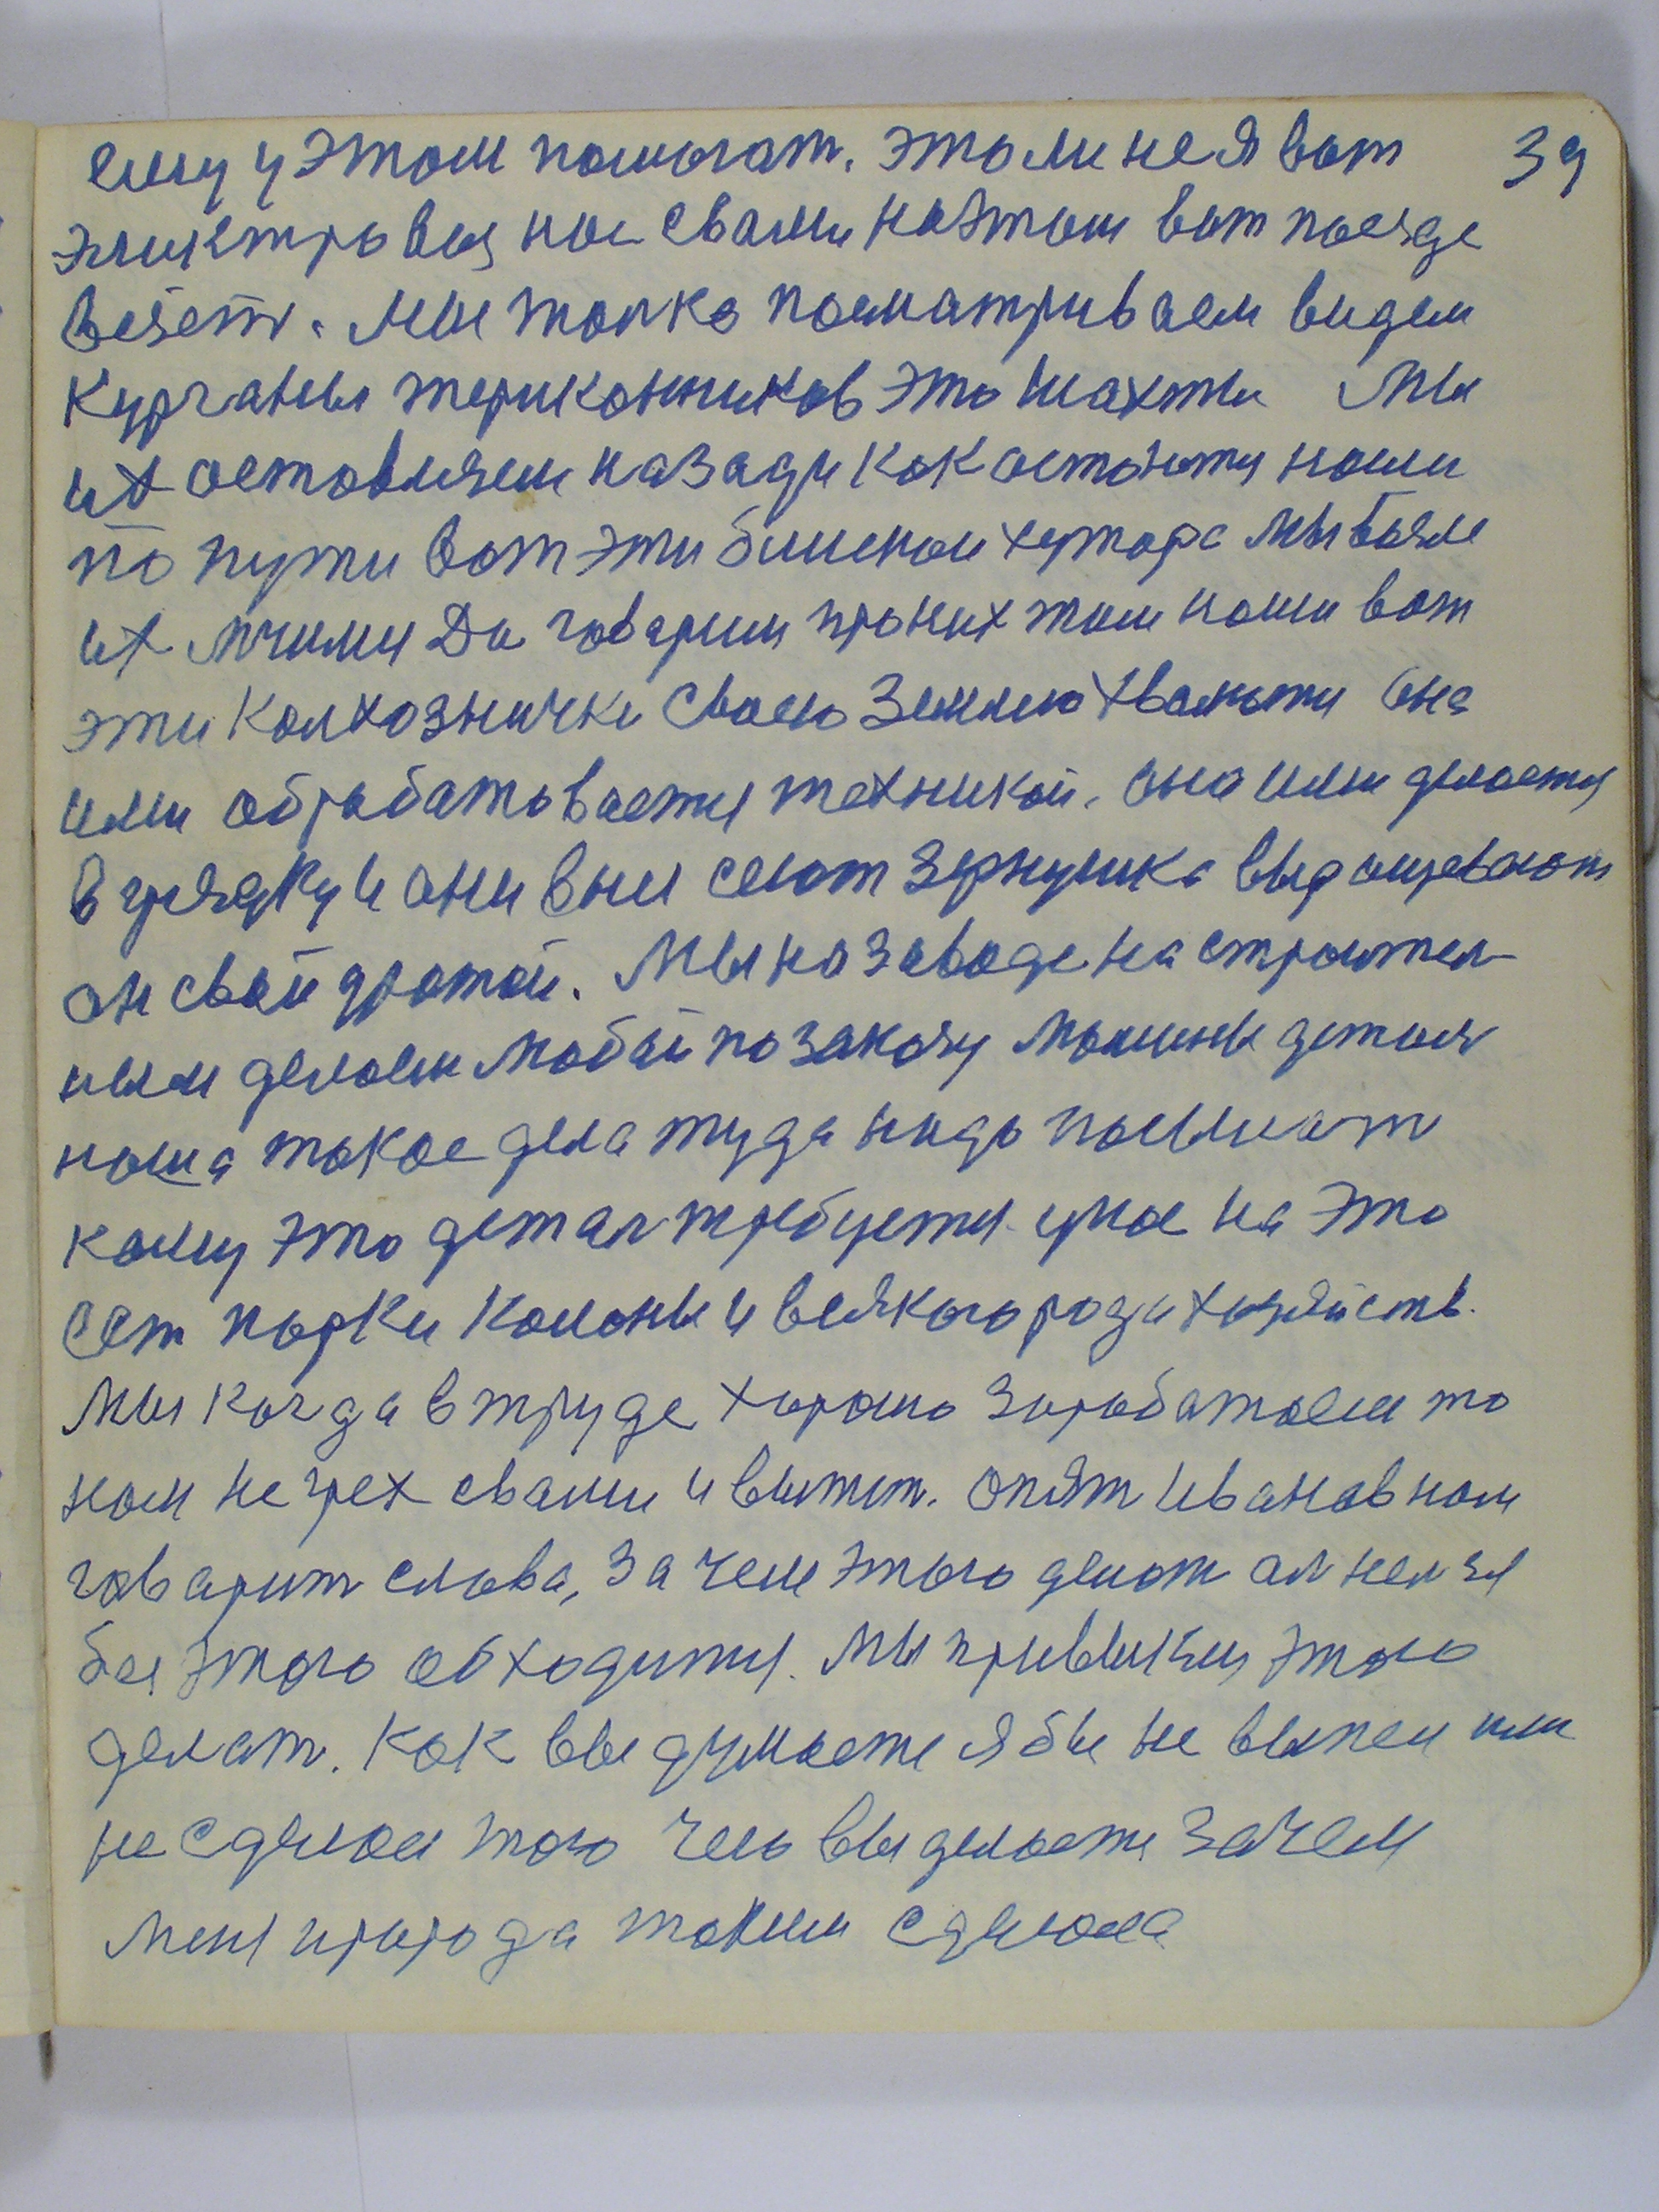 ему у этом помогат. это ли не я вот 39
эликтровоз нас свами на этом вот поезде
везёт. Мы толко посматриваем видем
курганы териконников это шахты Мы
их оставляем назади как остаются наши
по пути вот эти близкои хутора мы
их мчимы Да говарим проних там наши вот
эти колхознички своею землею хвалются она
ими обрабатовается техникой. она ими делается
в грядку и они вныи сеют зернушка выращевают
он свой другой. Мы на заводе на строител
ным делоем любой по заказу машины детоля
наша такое дела туда надо посылат
каму это детал требуется. унас на это
ест парки калоны и велякого рода хазяйств.
Мы когда в труде харошо зарабатоем то
нам не грех свами и выпит. опят Иванов нам
говарит слова, за чем этого делот ал нелзя
без этого обходится. мы привыкли этого
делат. как вы думаете я бы не выпел или
не сделол того чего вы делаете зачем
меня природа таким сделола